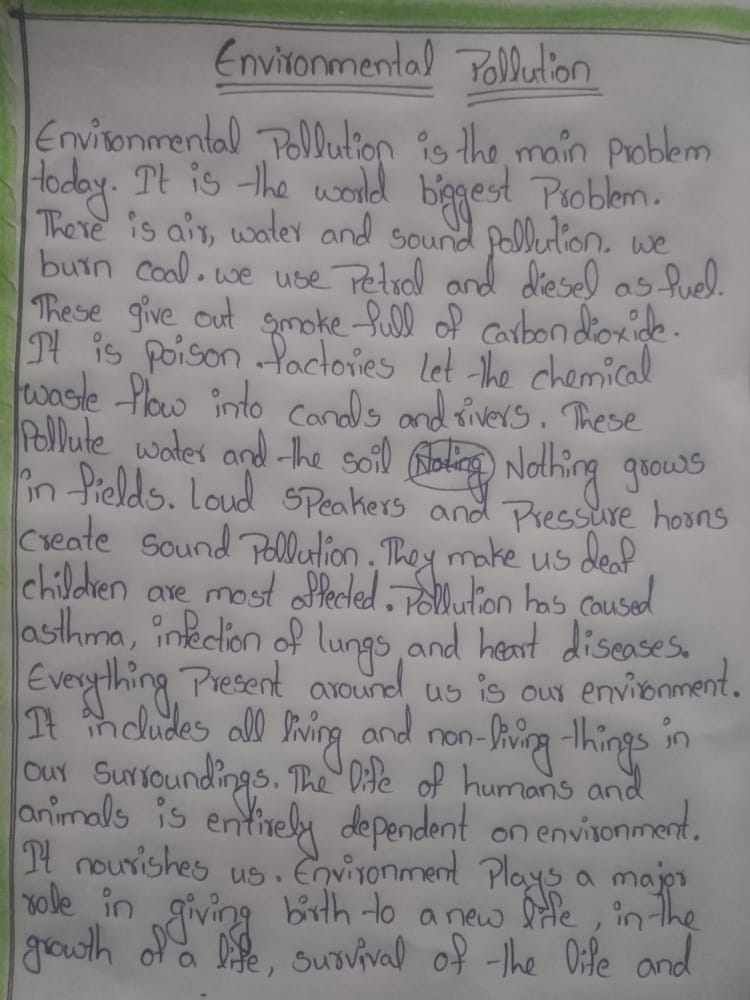 Environmental Pollution
Environmental Pollution is the main problem
today. It is the world biggest Problem.
There is air, water and sound pollution. we
burn coal. we use Petrol and diesel as fuel.
These give out smoke full of carbondioxide.
It is poison. factories let the chemical
waste flow into canals and rivers. These
Pollute water and the soil Noting Nothing grows
in fields. Loud speakers and Pressure horns
create sound Pollution. They make us deaf
children are most affected. Pollution has caused
asthma, infection of lungs and heart diseases.
Everything Present around us is our environment.
It includes all living and non-living things in
our surroundings. The life of humans and
animals is entirely dependent on environment.
It nourishes us. Environment Plays a major
role in giving birth to a new life, in the
growth of a life, survival of the life and